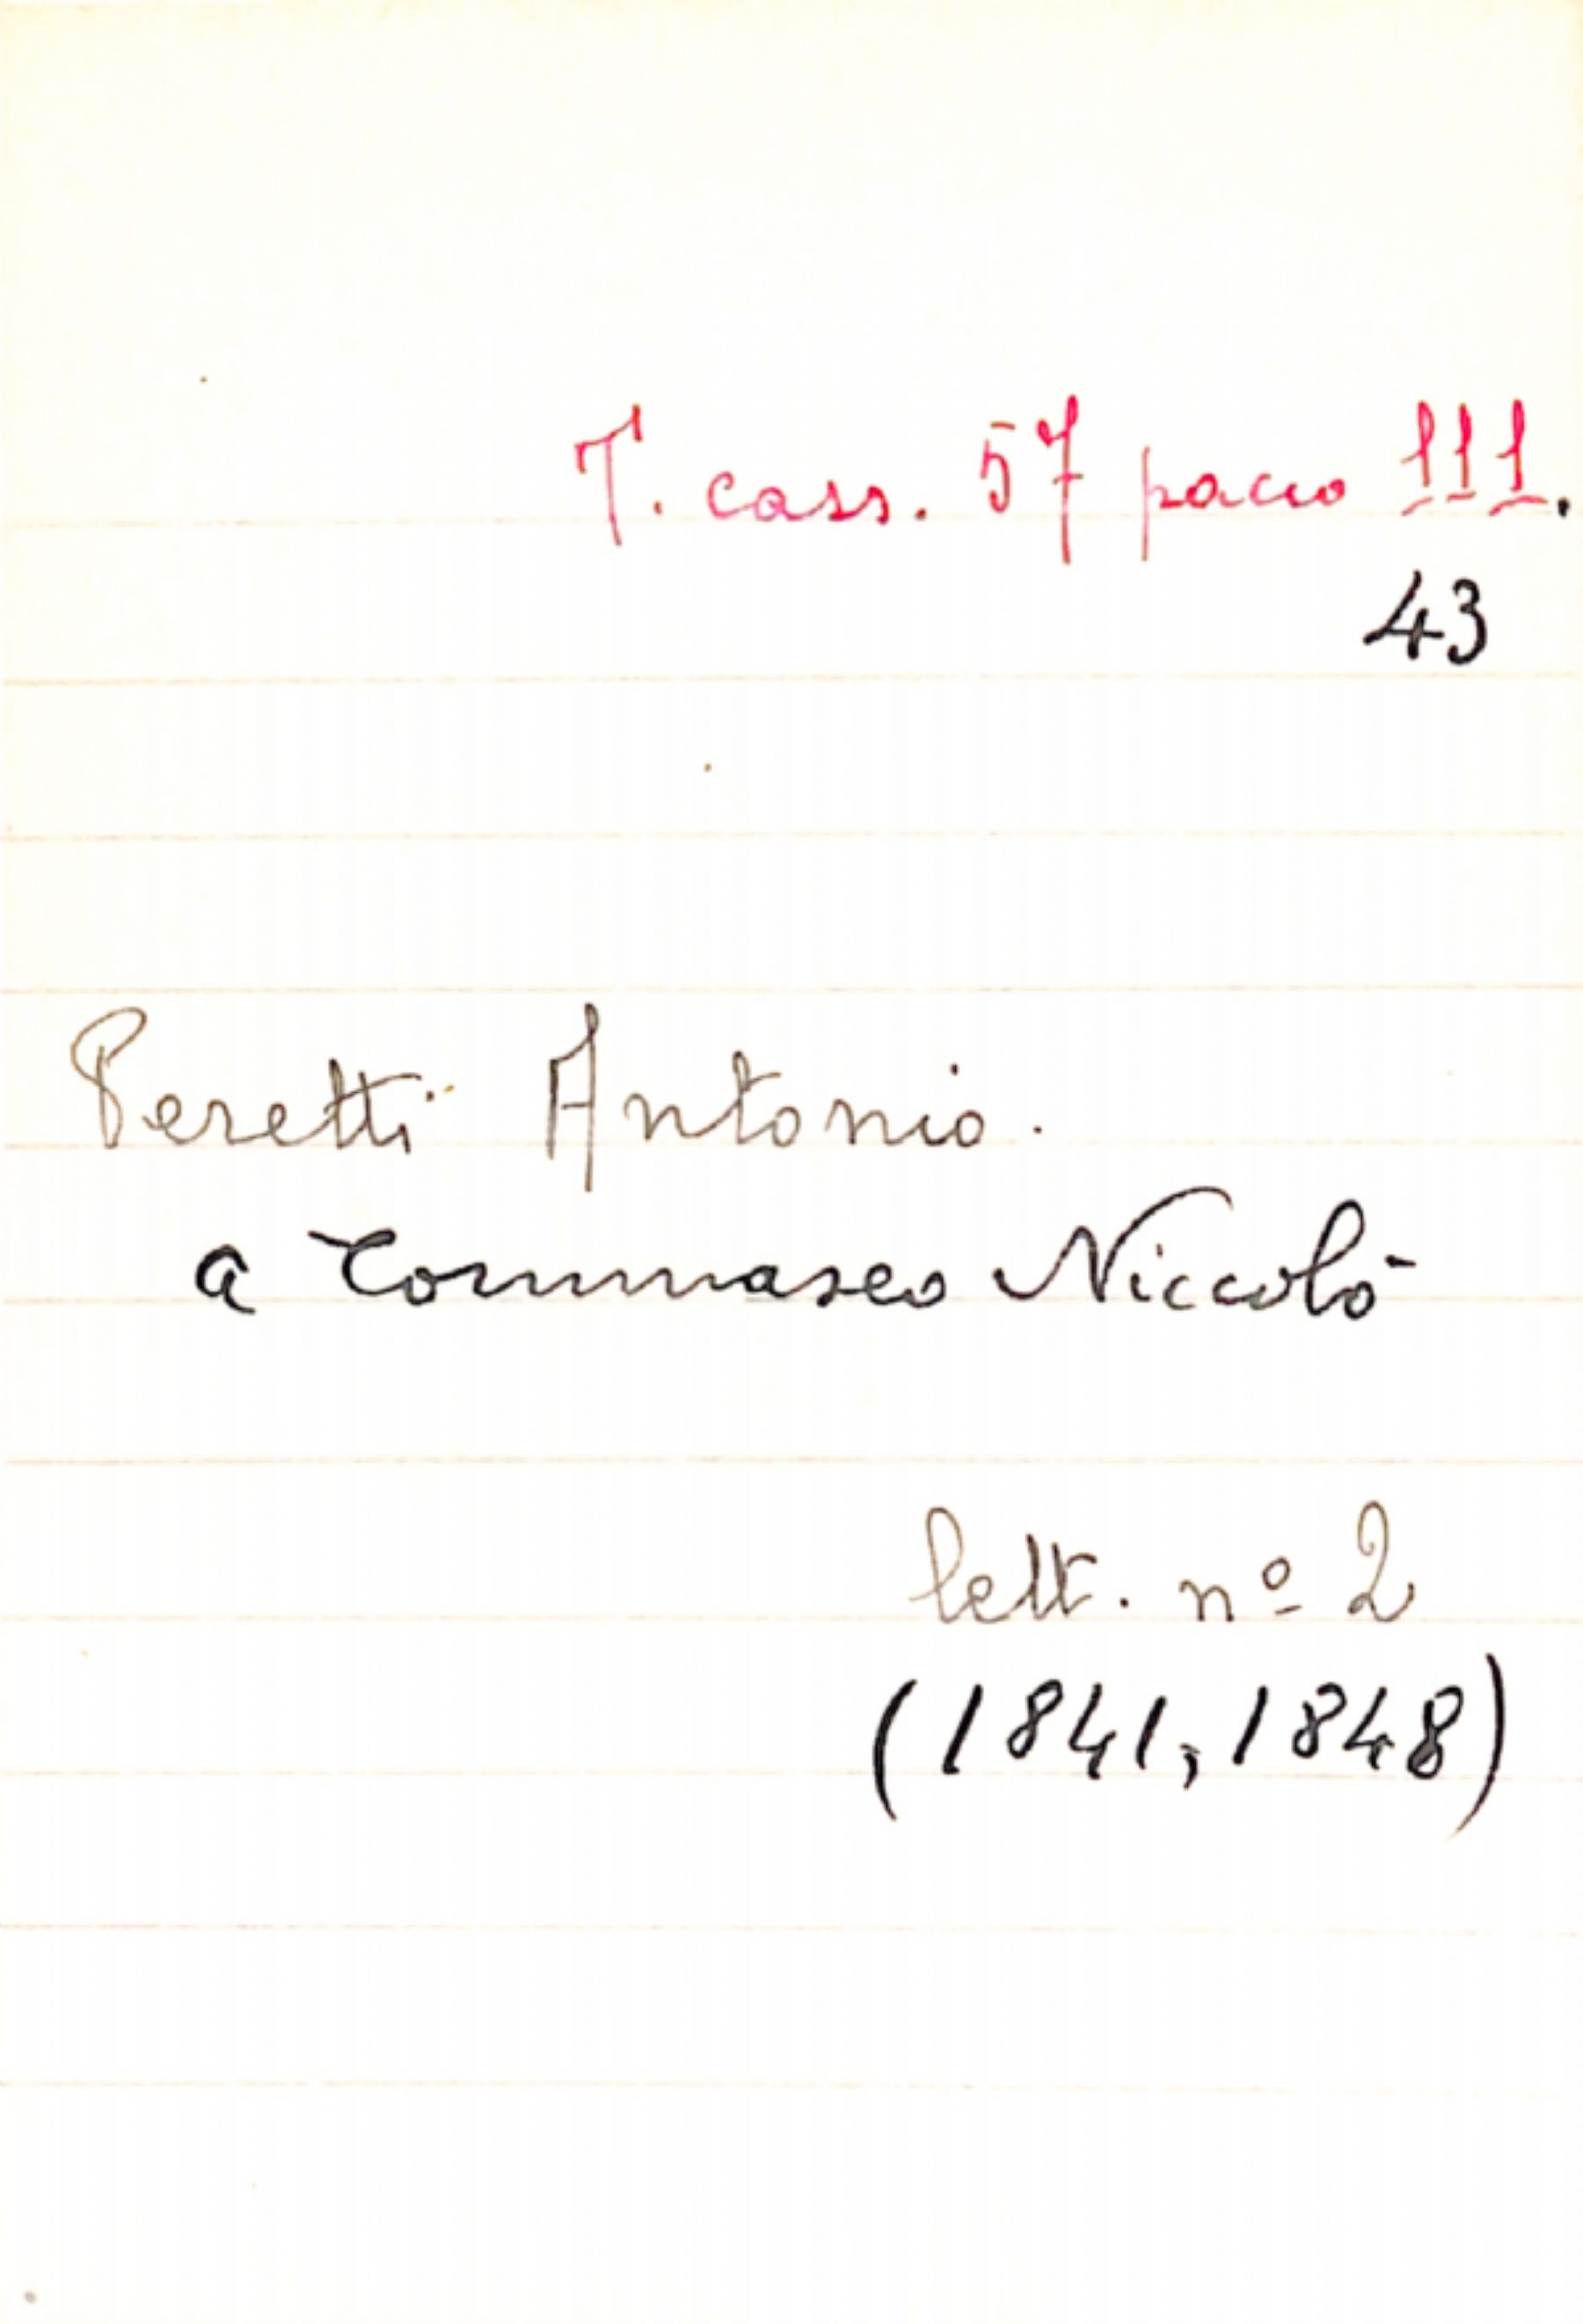 T. cass. 57 pacco III.
43
Peretti Antonio.
a Tommaseo Niccolò
lett. nº 2
(1841, 1848)